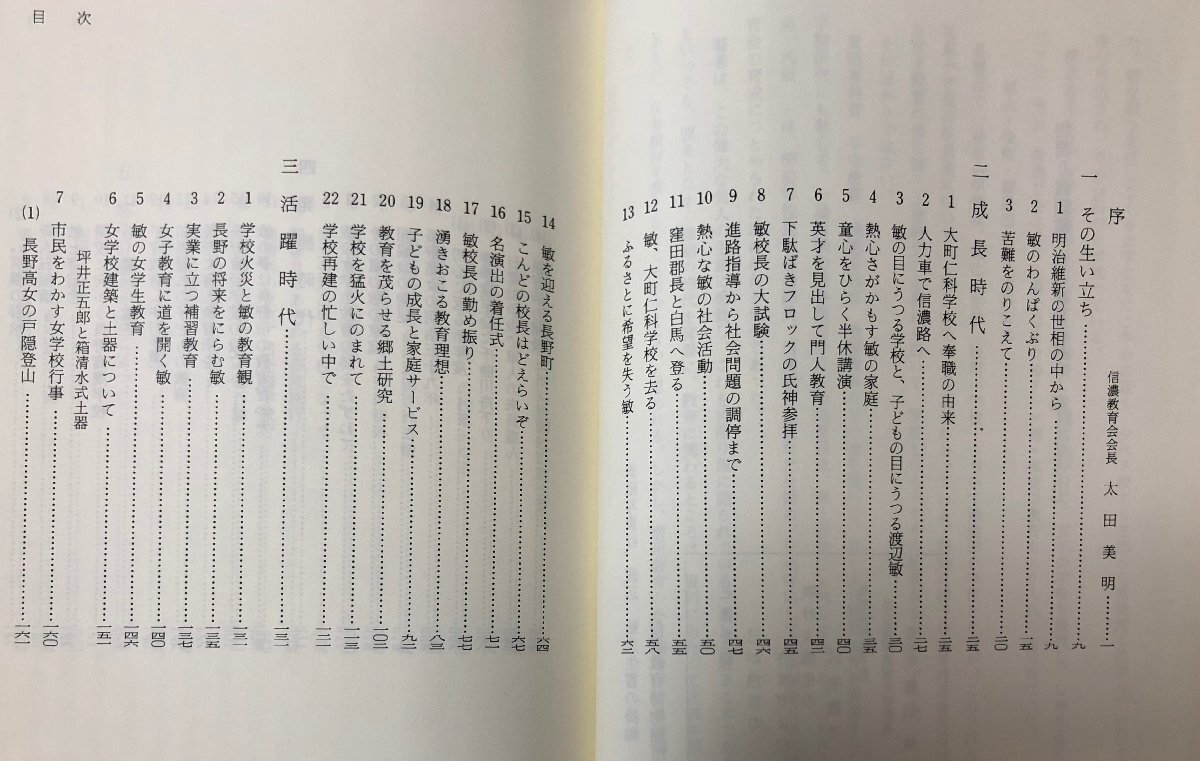 目次
序　信濃教育会会長　太田美明……一
一　その生い立ち……九
1　明治維新の世相の中から……九
2　敏のわんぱくぶり……一五
3　苦難をのりこえて……二〇
二　成長時代……二五
1　大町仁科学校へ奉職の由来……二五
2　人力車で信濃路へ……二七
3　敏の目にうつる学校と、子どもの目にうつる渡辺敏……三〇
4　熱心さがかもす敏の家庭……三五
5　童心をひらく半休講演……四〇
6　英才を見出して門人教育……四二
7　下駄ばきフロックの氏神参拝……四五
8　敏校長の大試験……四六
9　進路指導から社会問題の調停まで……四七
10　熱心な敏の社会活動……五〇
11　窪田郡長と白馬へ登る……五五
12　敏、大町仁科学校を去る……五八
13　ふるさとに希望を失う敏……六二
14　敏を迎える長野町……六四
15　こんどの校長はどえらいぞ……六七
16　名演出の着任式……七一
17　敏校長の勤め振り……七七
18　湧きおこる教育理想……八三
19　子どもの成長と家庭サービス……九二
20　教育を茂らせる郷土研究……一〇二
21　学校を猛火にのまれて……一一三
22　学校再建の忙しい中で……一二二
三　活躍時代……一三一
1　学校火災と敏の教育観……一三一
2　長野の将来をにらむ敏……一三五
3　実業に立つ補習教育……一三七
4　女子教育に道を開く敏……一四〇
5　敏の女学生教育……一四六
6　女学校建築と土器について……一五一
坪井正五郎と箱清水式土器
7　市民をわかす女学校行事……一六〇
(1)　長野高女の戸隠登山……一六一